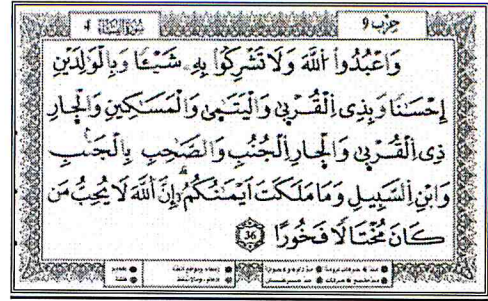 سُورَةُ النِّسَاءِ 4 حِزْب 9
وَاعْبُدُوا۟ اللَّهَ وَلَا تُشْرِكُوا۟ بِهِۦ شَيْـًٔا وَبِالْوَٰلِدَيْنِ
إِحْسَٰنًا وَبِذِى الْقُرْبَىٰ وَالْيَتَٰمَىٰ وَالْمَسَٰكِينِ وَالْجَارِ
ذِى الْقُرْبَىٰ وَالْجَارِ الْجُنُبِ وَالصَّاحِبِ بِالْجَنۢبِ
وَابْنِ السَّبِيلِ وَمَا مَلَكَتْ أَيْمَٰنُكُمْ ۗ إِنَّ اللَّهَ لَا يُحِبُّ مَن
كَانَ مُخْتَالًا فَخُورًا 36